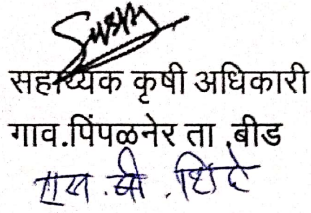 सहाय्यक कृषी अधिकारी
गाव.पिंपळनेर ता .बीड
एस.बी.शिंदे